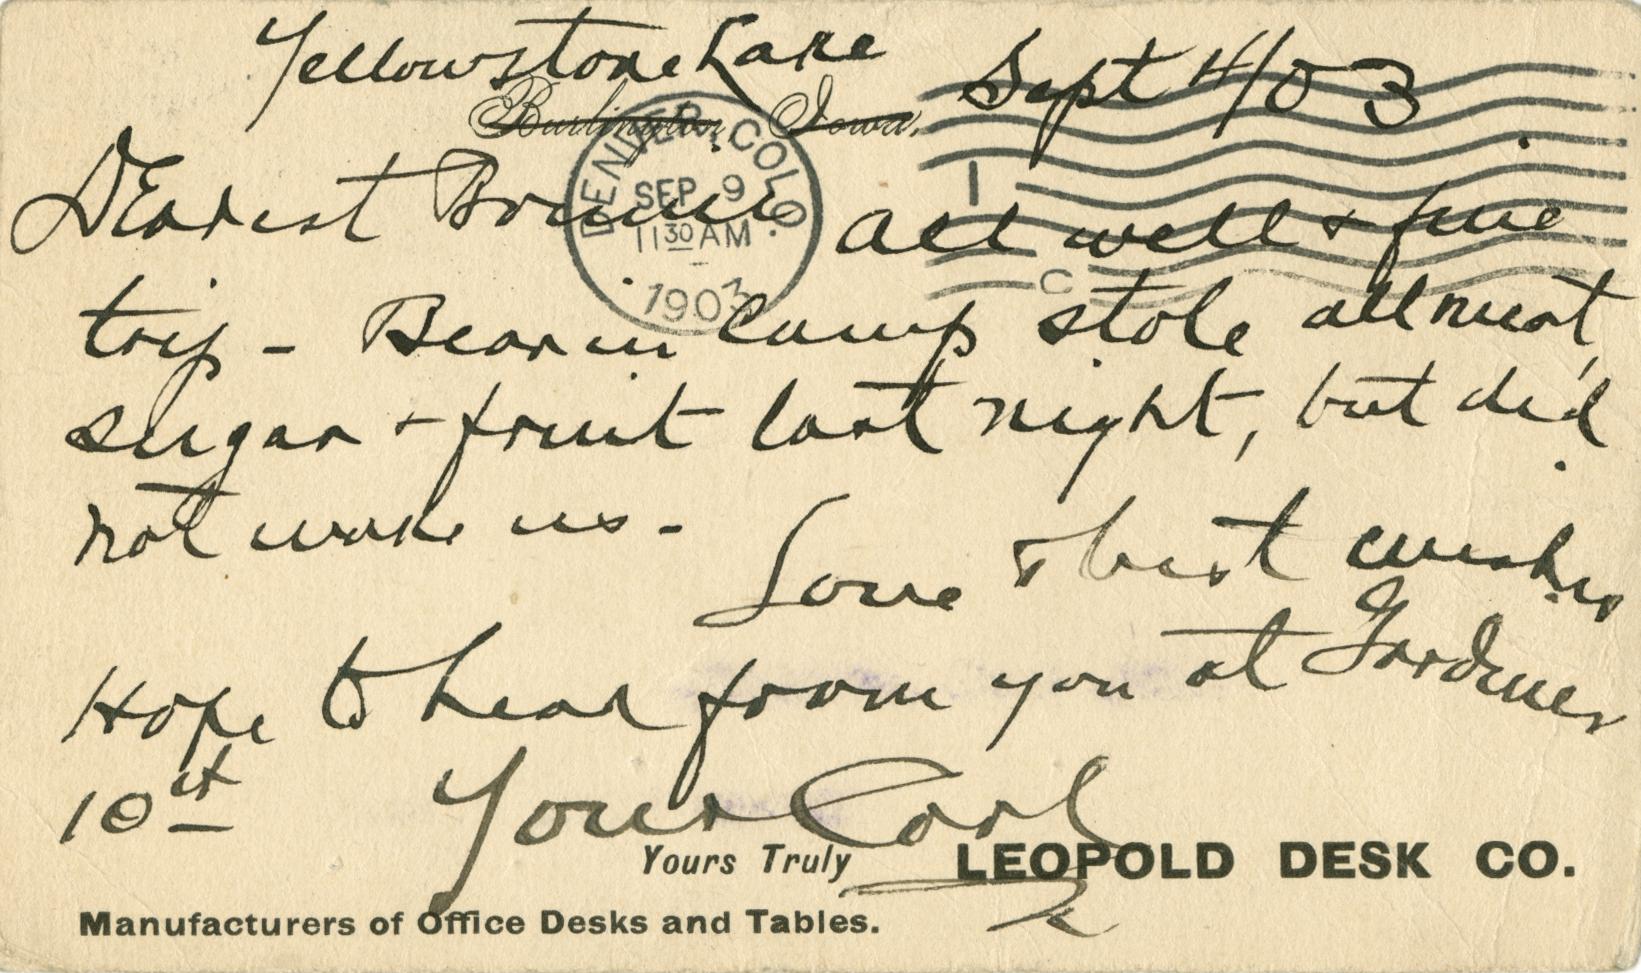 Yellowstone Lake Sept 4/03
Burlington, Iowa,
DENVER, COLO.
SEP 9
11 30 AM
1903
1
C
Dearest Bonnie all well & fine
trip - Bear in camp stole all meat,
sugar & fruit last night, but did
not wake us -
Love & best wishes
Hope to hear from you at Gardiner
10th Your Carl
Yours Truly LEOPOLD DESK CO.
Manufacturers of Office Desks and Tables.